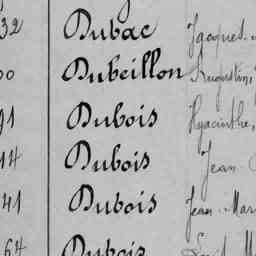 32 Dubac Jacques
Dubeillon Augustin,
91 Dubois Hyacinthe,
14 Dubois Jean
41 Dubois Jean-Mar
64 Dubois